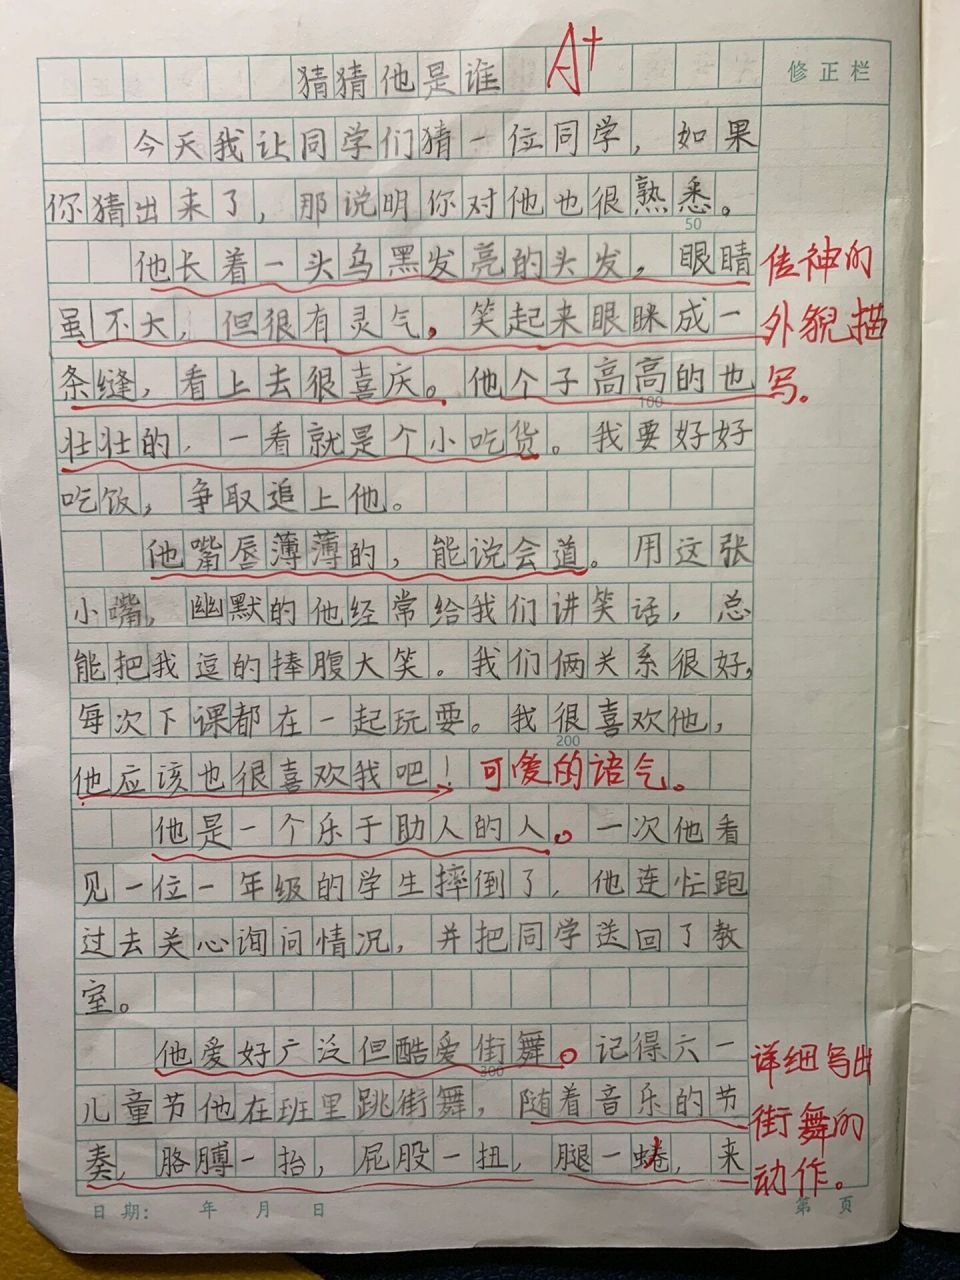 猜猜他是谁 A+
修正栏
今天我让同学们猜一位同学，如果
你猜出来了，那说明你对他也很熟悉。
50
他长着一头乌黑发亮的头发，眼睛
虽不大，但很有灵气，笑起来眼眯成一
条缝，看上去很喜庆。他个子高高的也
100
壮壮的，一看就是个小吃货。我要好好
吃饭，争取追上他。
传神的
外貌描
写。
他嘴唇薄薄的，能说会道。用这张
小嘴，幽默的他经常给我们讲笑话，总
能把我逗的捧腹大笑。我们俩关系很好，
每次下课都在一起玩耍。我很喜欢他，
200
他应该也很喜欢我吧！可爱的语气。
他是一个乐于助人的人。一次他看
见一位一年级的学生摔倒了，他连忙跑
过去关心询问情况，并把同学送回了教
室。
他爱好广泛但酷爱街舞。记得六一
300
儿童节他在班里跳街舞，随着音乐的节
奏，胳膊一抬，屁股一扭，腿一蜷，来
详细写出
街舞的
动作。
日期： 年 月 日
第 页